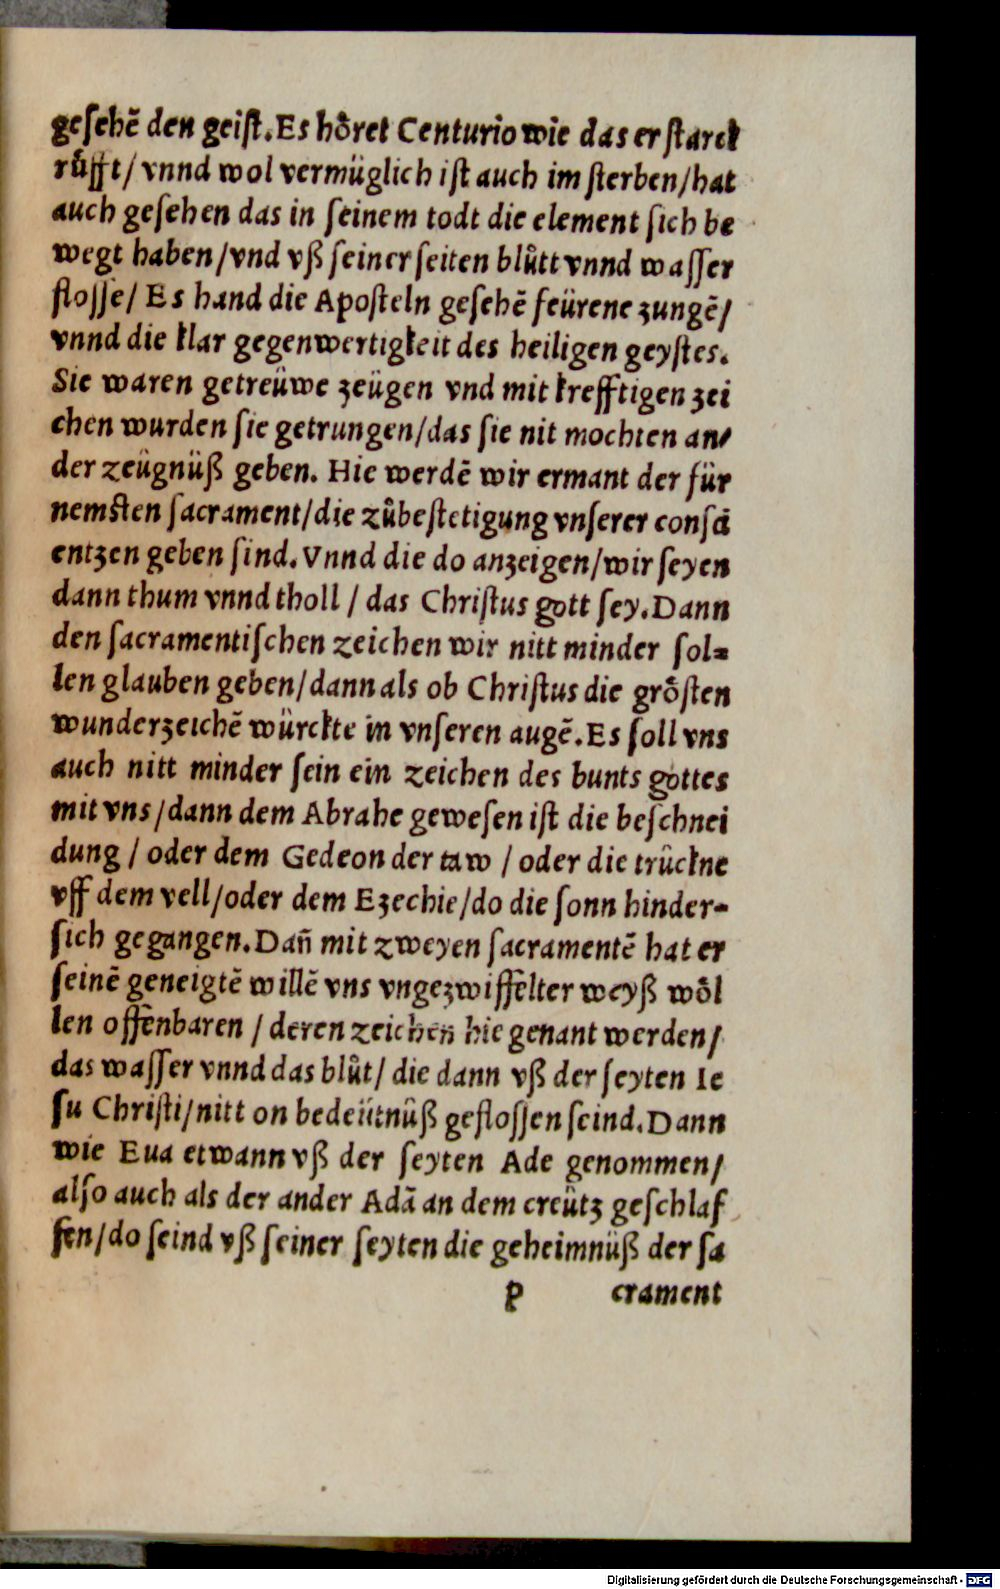 geſehẽ den geiſt. Es hoͤret Centurio wie das er ſtarck
ruͤfft/ vnnd wol vermüglich iſt auch im ſterben/hat
auch geſehen das in ſeinem todt die element ſich be
wegt haben/vnd vß ſeiner ſeiten bluͦtt vnnd waſſer
floſſe/ Es hand die Apoſteln geſehẽ feürene zungẽ/
vnnd die klar gegenwertigkeit des heiligen geyſtes.
Sie waren getreüwe zeügen vnd mit krefftigen zei
chen wurden ſie getrungen/das ſie nit mochten an⸗
der zeügnüß geben. Hie werdẽ wir ermant der für
nemſten ſacrament/die zuͦbeſtetigung vnſerer conſci
entzen geben ſind. Vnnd die do anzeigen/wir ſeyen
dann thum vnnd tholl / das Chriſtus gott ſey. Dann
den ſacramentiſchen zeichen wir nitt minder ſol⸗
len glauben geben/dann als ob Chriſtus die groͤſten
wunderzeichẽ würckte in vnſeren augẽ. Es ſoll vns
auch nitt minder ſein ein zeichen des bunts gottes
mit vns/dann dem Abrahe geweſen iſt die beſchnei
dung / oder dem Gedeon der taw / oder die trückne
vff dem vell/oder dem Ezechie/do die ſonn hinder⸗
ſich gegangen. Dañ mit zweyen ſacramentẽ hat er
ſeinẽ geneigtẽ willẽ vns vngezwiffelter weyß woͤl
len offenbaren / deren zeichen hie genant werden/
das waſſer vnnd das bluͦt/ die dann vß der ſeyten Ie
ſu Chriſti/nitt on bedeütnüß gefloſſen ſeind. Dann
wie Eua etwann vß der ſeyten Ade genommen/
alſo auch als der ander Adã an dem creütz geſchlaf
fen/do ſeind vß ſeiner ſeyten die geheimnüß der ſa
p crament
Digitalisierung gefördert durch die Deutsche Forschungsgemeinschaft - DFG